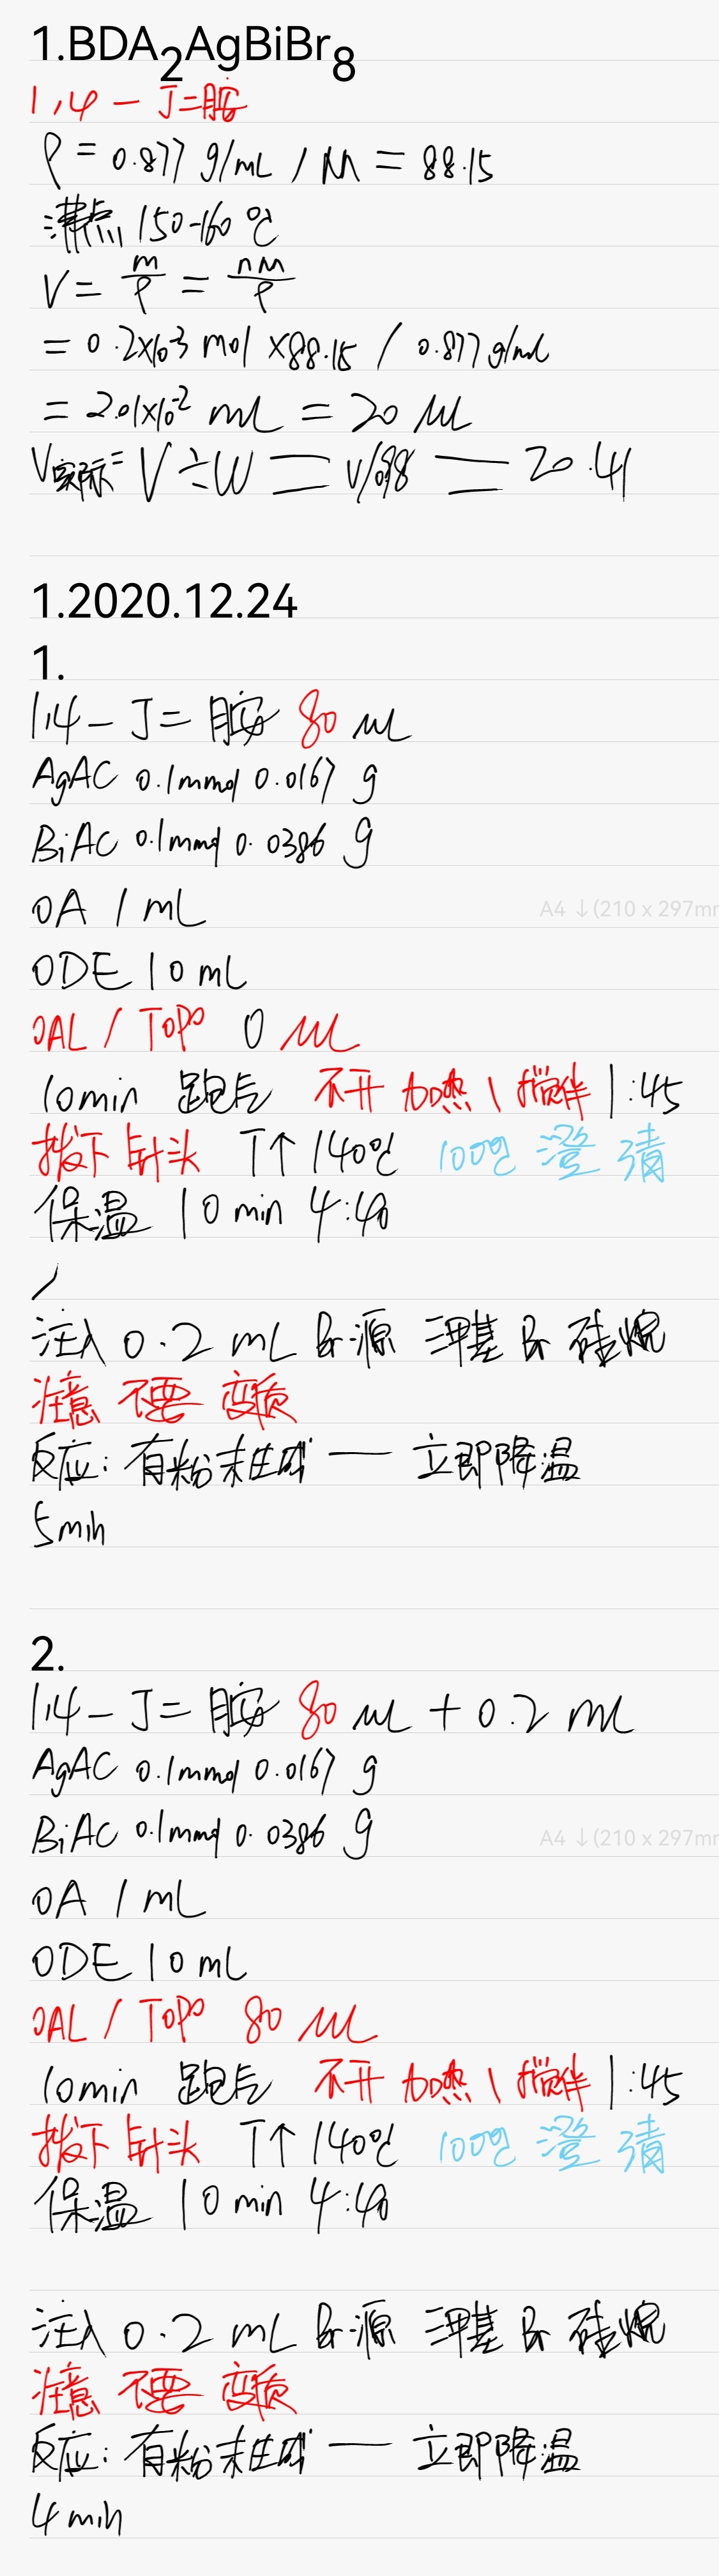 1.BDA2AgBiBr8
1,4-丁二胺
ρ = 0.877 g/mL / M = 88.15
沸点 150-160 ℃
V = m/ρ = nM/ρ
= 0.2×10-3 mol ×88.15 / 0.877 g/mL
= 2.01×10-2 mL = 20 μL
V实际 = V÷W = V/0.98 = 20.41
1.2020.12.24
1.
1,4-丁二胺 80 μL
AgAC 0.1mmol 0.0167 g
BiAC 0.1mmol 0.0386 g
OA 1 mL
A4 ↓(210 x 297mm
ODE 10 mL
OAL / TOPO 0 μL
10min 跑后 不开 加热、搅拌 1:45
拔下针头 T↑ 140℃ 100℃ 澄清
保温 10 min 4:40
/
注入 0.2 mL Br源 三甲基 Br 硅烷
注意 不要 变质
反应: 有粉末生成 — 立即降温
5min
2.
1,4-丁二胺 80 μL + 0.2 mL
AgAC 0.1mmol 0.0167 g
BiAC 0.1mmol 0.0386 g
A4 ↓(210 x 297mm
OA 1 mL
ODE 10 mL
OAL / TOPO 80 μL
10min 跑后 不开 加热、搅拌 1:45
拔下针头 T↑ 140℃ 100℃ 澄清
保温 10 min 4:40
注入 0.2 mL Br源 三甲基 Br 硅烷
注意 不要 变质
反应: 有粉末生成 — 立即降温
4min